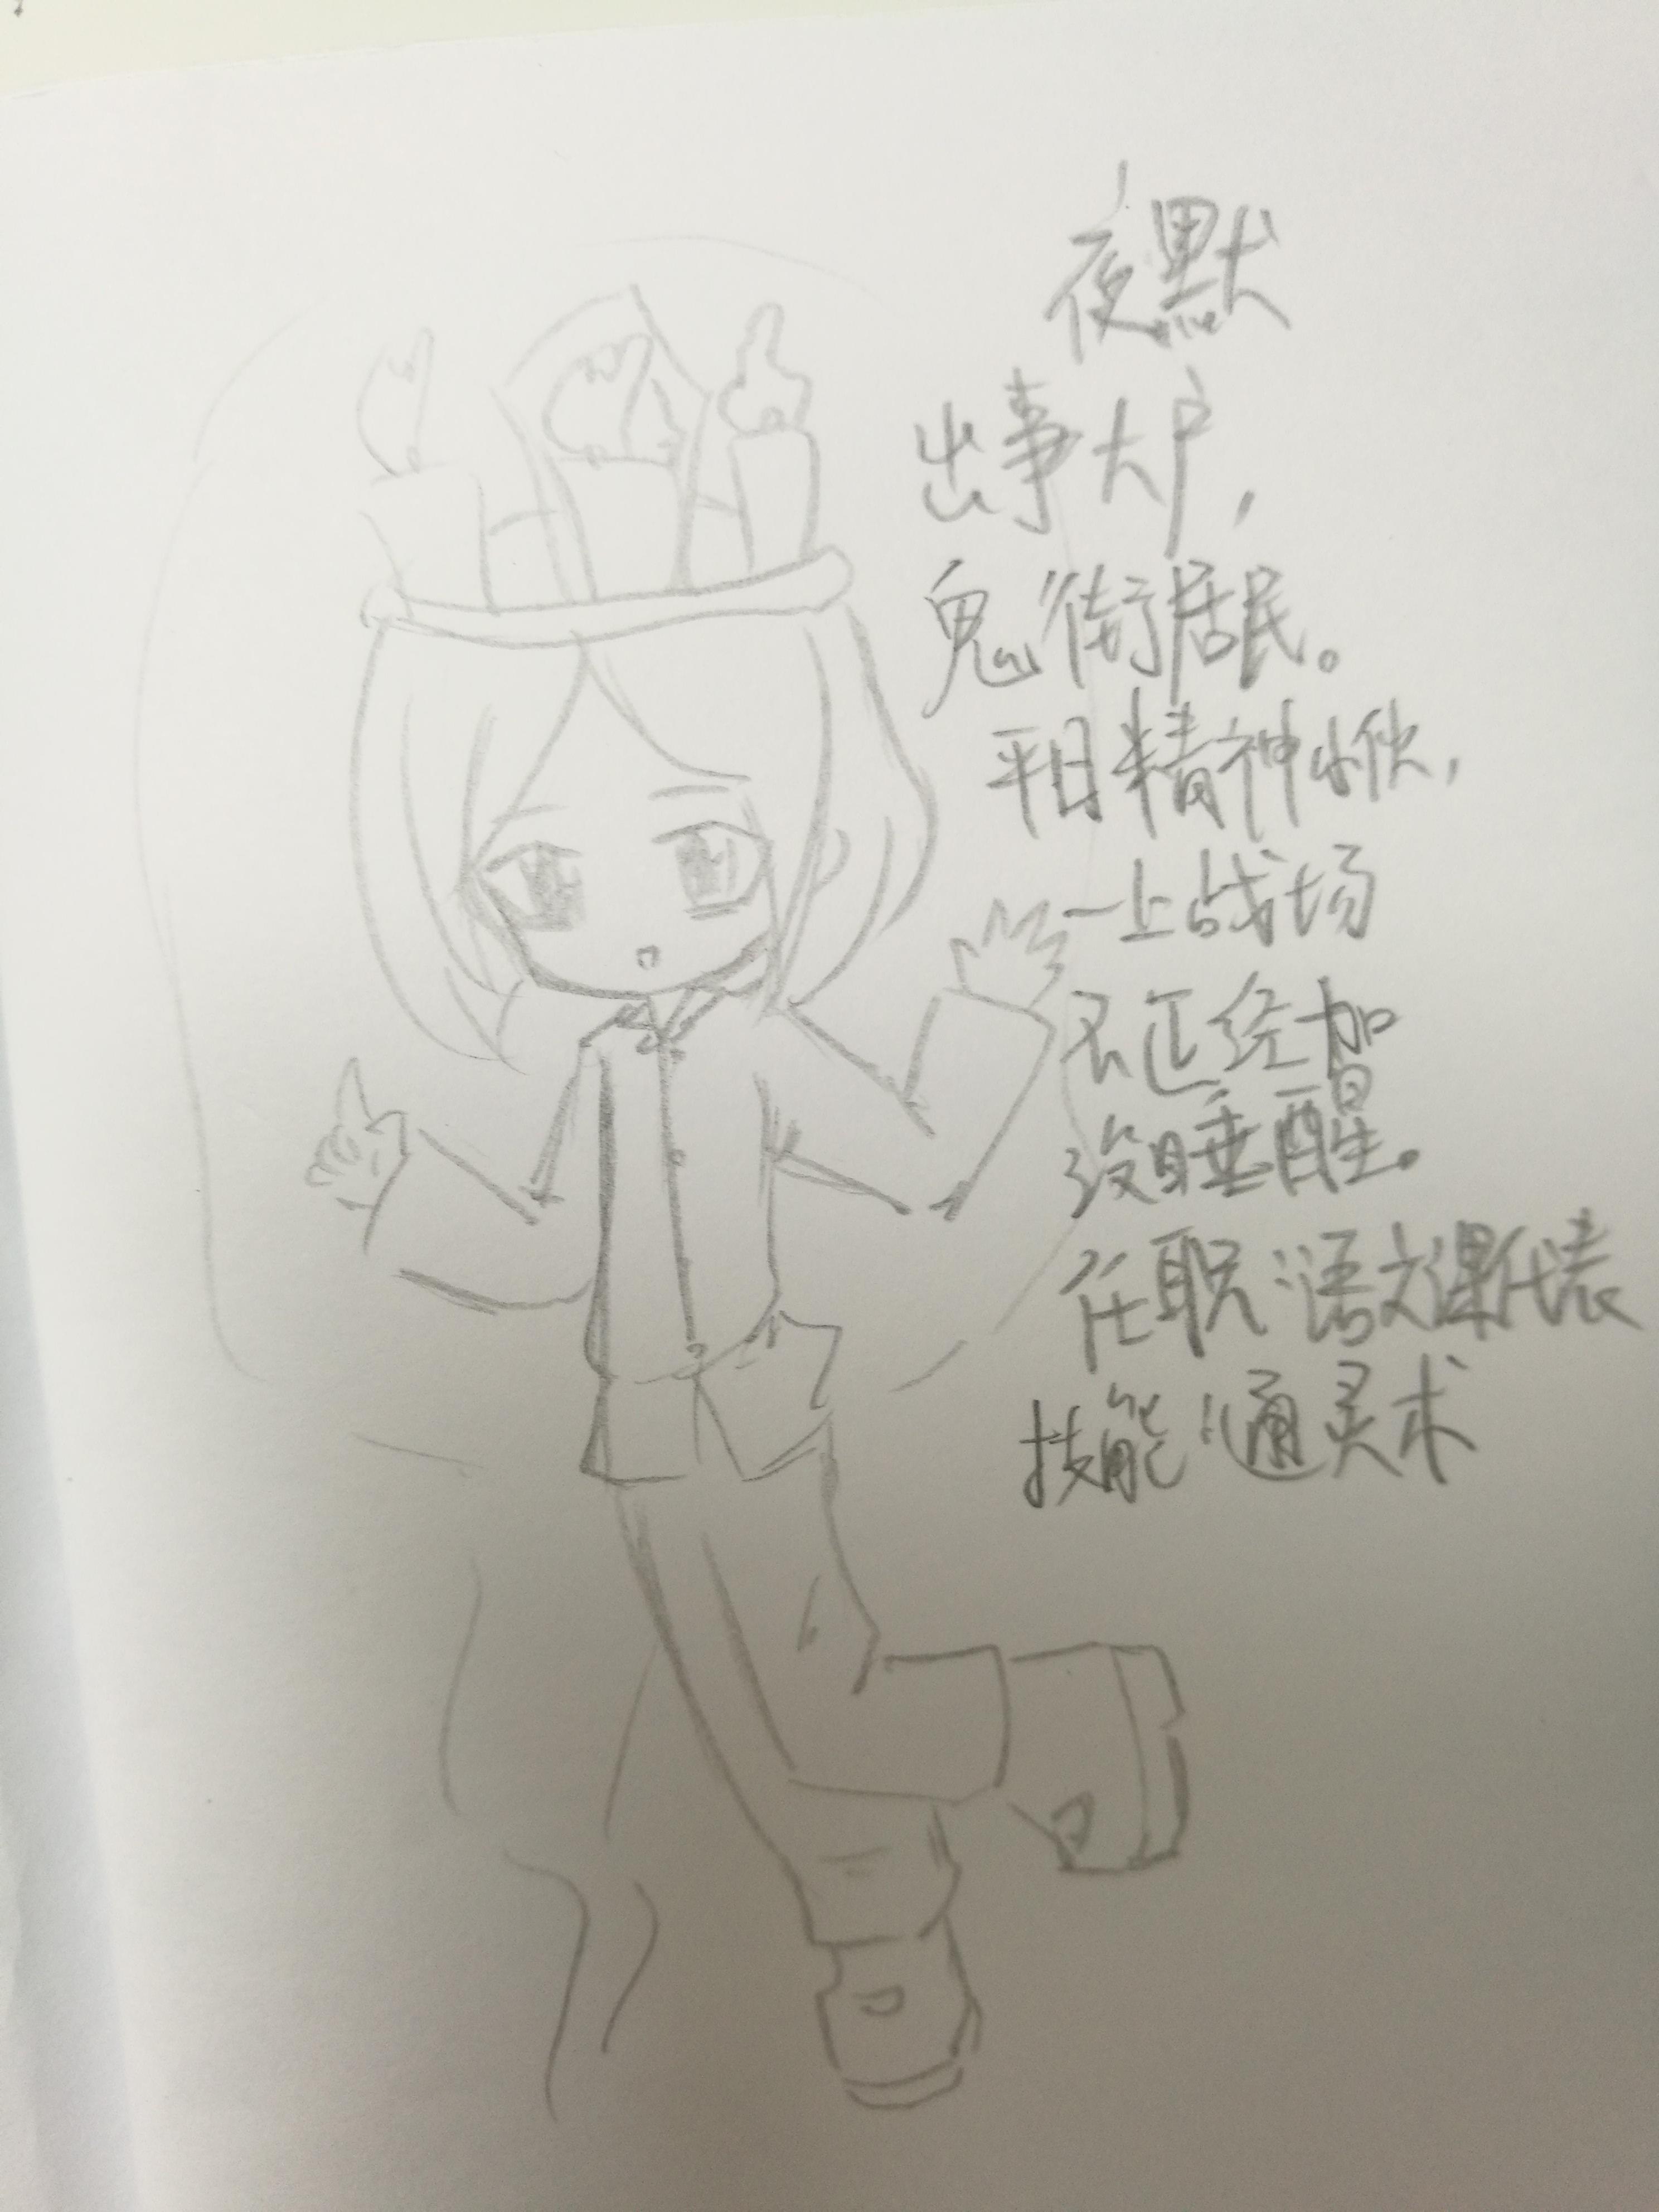 夜默
出事大户，
鬼街居民。
平日精神小伙，
一上战场
不正经加
没睡醒。
任职：语文课代表
技能：通灵术